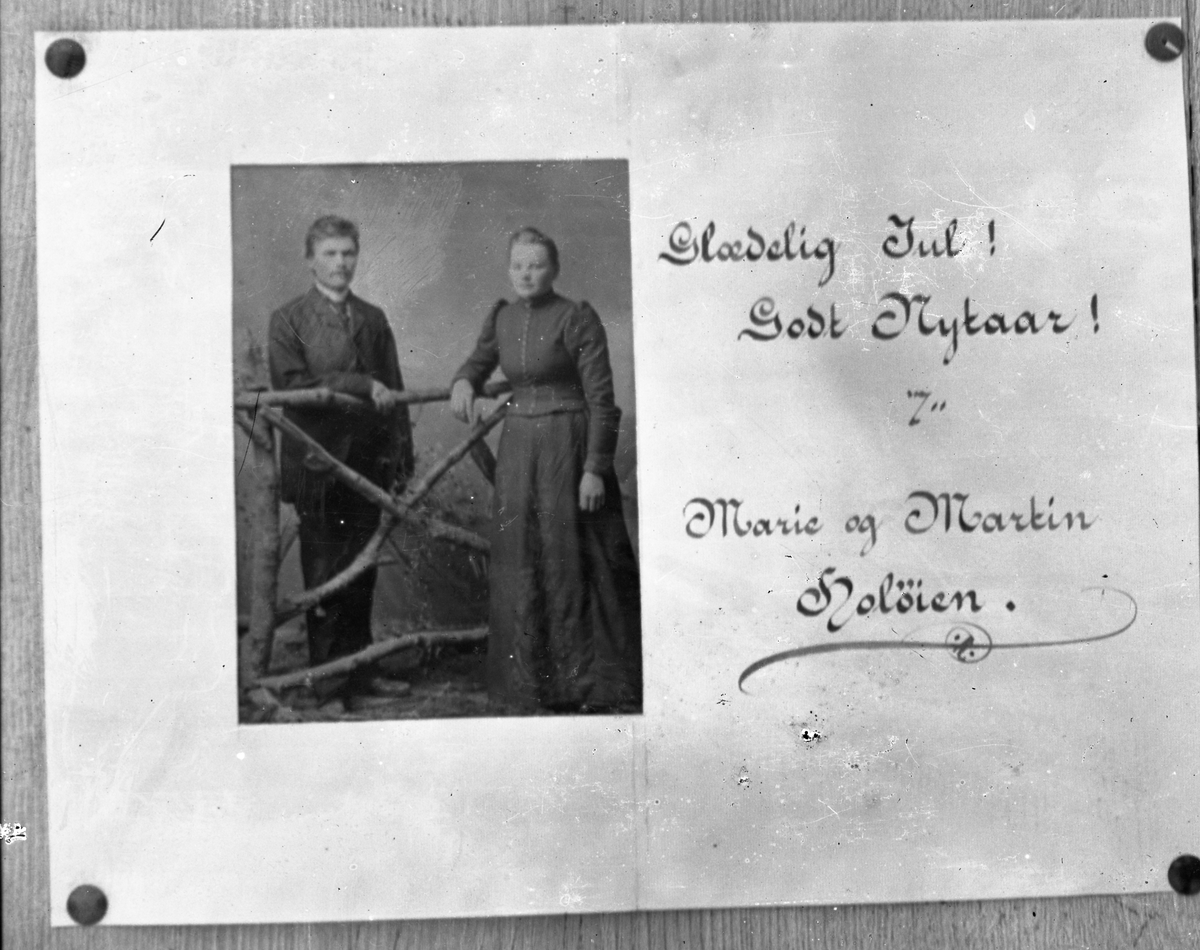 Glædelig Jul!
Godt Nytaar!
Marie og Martin
Holöien.